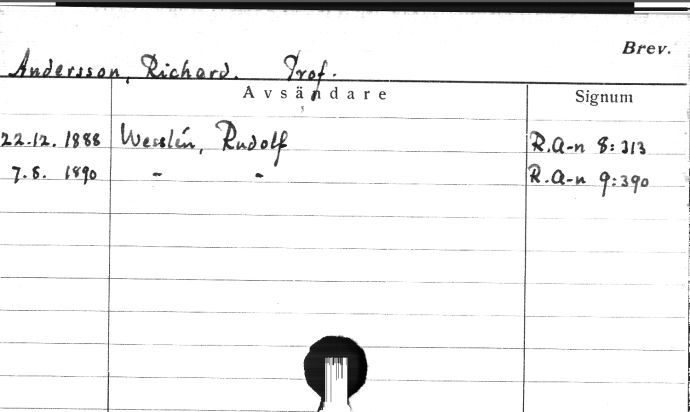 Brev.
Andersson, Richard. Prof.
Avsändare Signum
22.12. 1888 Wesslén, Rudolf R.A-n 8:313
7.8. 1890 - - R.A-n 9:390